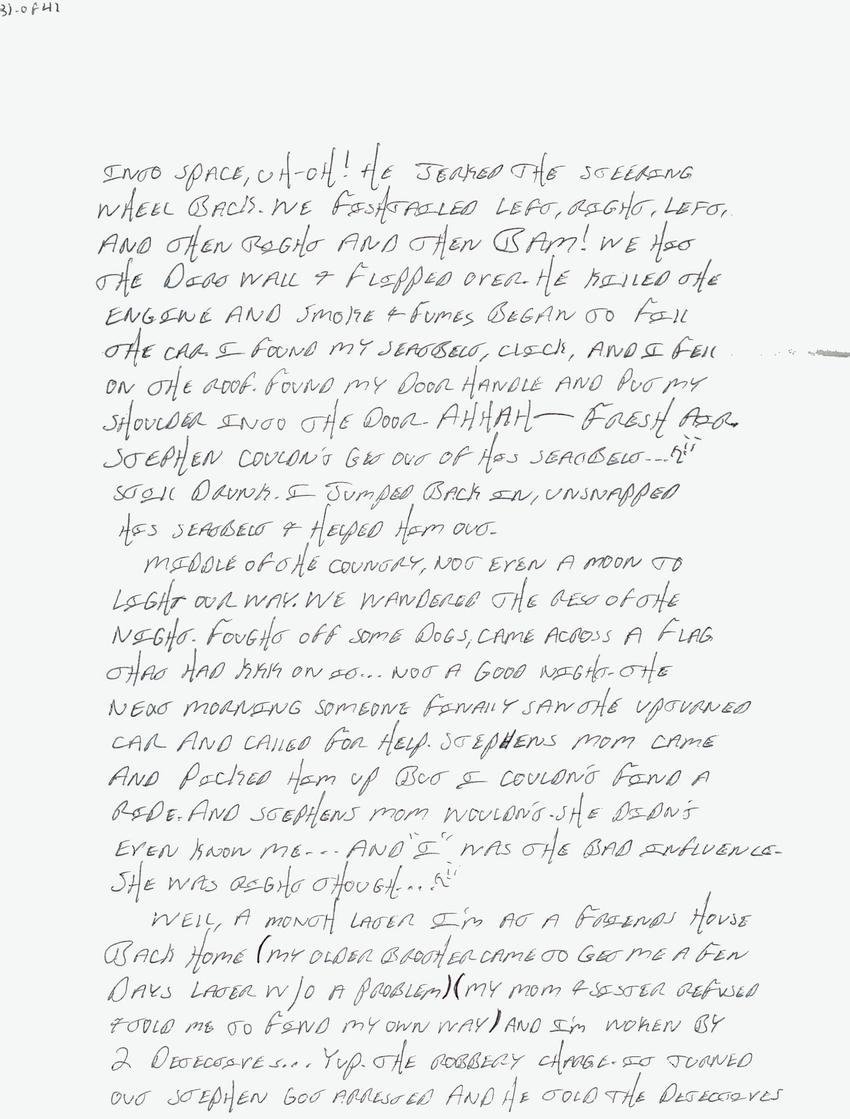 3) of 41
INTO SPACE, UH-OH! HE JERKED THE STEERING
WHEEL BACK. WE FISHTAILED LEFT, RIGHT, LEFT,
AND THEN RIGHT AND THEN BAM! WE HIT
THE DIRT WALL & FLIPPED OVER. HE KILLED THE
ENGINE AND SMOKE & FUMES BEGAN TO FILL
THE CAR. I FOUND MY SEATBELT, CLICK, AND I FELL
ON THE ROOF. FOUND MY DOOR HANDLE AND PUT MY
SHOULDER INTO THE DOOR. AHHAH— FRESH AIR.
STEPHEN COULDN'T GET OUT OF HIS SEATBELT...
STILL DRUNK. I JUMPED BACK IN, UNSNAPPED
HIS SEATBELT & HELPED HIM OUT.
MIDDLE OF THE COUNTRY, NOT EVEN A MOON TO
LIGHT OUR WAY. WE WANDERED THE REST OF THE
NIGHT. FOUGHT OFF SOME DOGS, CAME ACROSS A FLAG
THAT HAD KKK ON IT... NOT A GOOD NIGHT. THE
NEXT MORNING SOMEONE FINALLY SAW THE UPTURNED
CAR AND CALLED FOR HELP. STEPHENS MOM CAME
AND PICKED HIM UP BUT I COULDN'T FIND A
RIDE. AND STEPHENS MOM WOULDN'T. SHE DIDN'T
EVEN KNOW ME... AND "I" WAS THE BAD INFLUENCE.
SHE WAS RIGHT THOUGH...
WELL, A MONTH LATER I'M AT A FRIENDS HOUSE
BACK HOME (MY OLDER BROTHER CAME TO GET ME A FEW
DAYS LATER W/O A PROBLEM) (MY MOM & SISTER REFUSED
& TOLD ME TO FIND MY OWN WAY) AND I'M WOKEN BY
2 DETECTIVES... YUP. THE ROBBERY CHARGE. IT TURNED
OUT STEPHEN GOT ARRESTED AND HE TOLD THE DETECTIVES